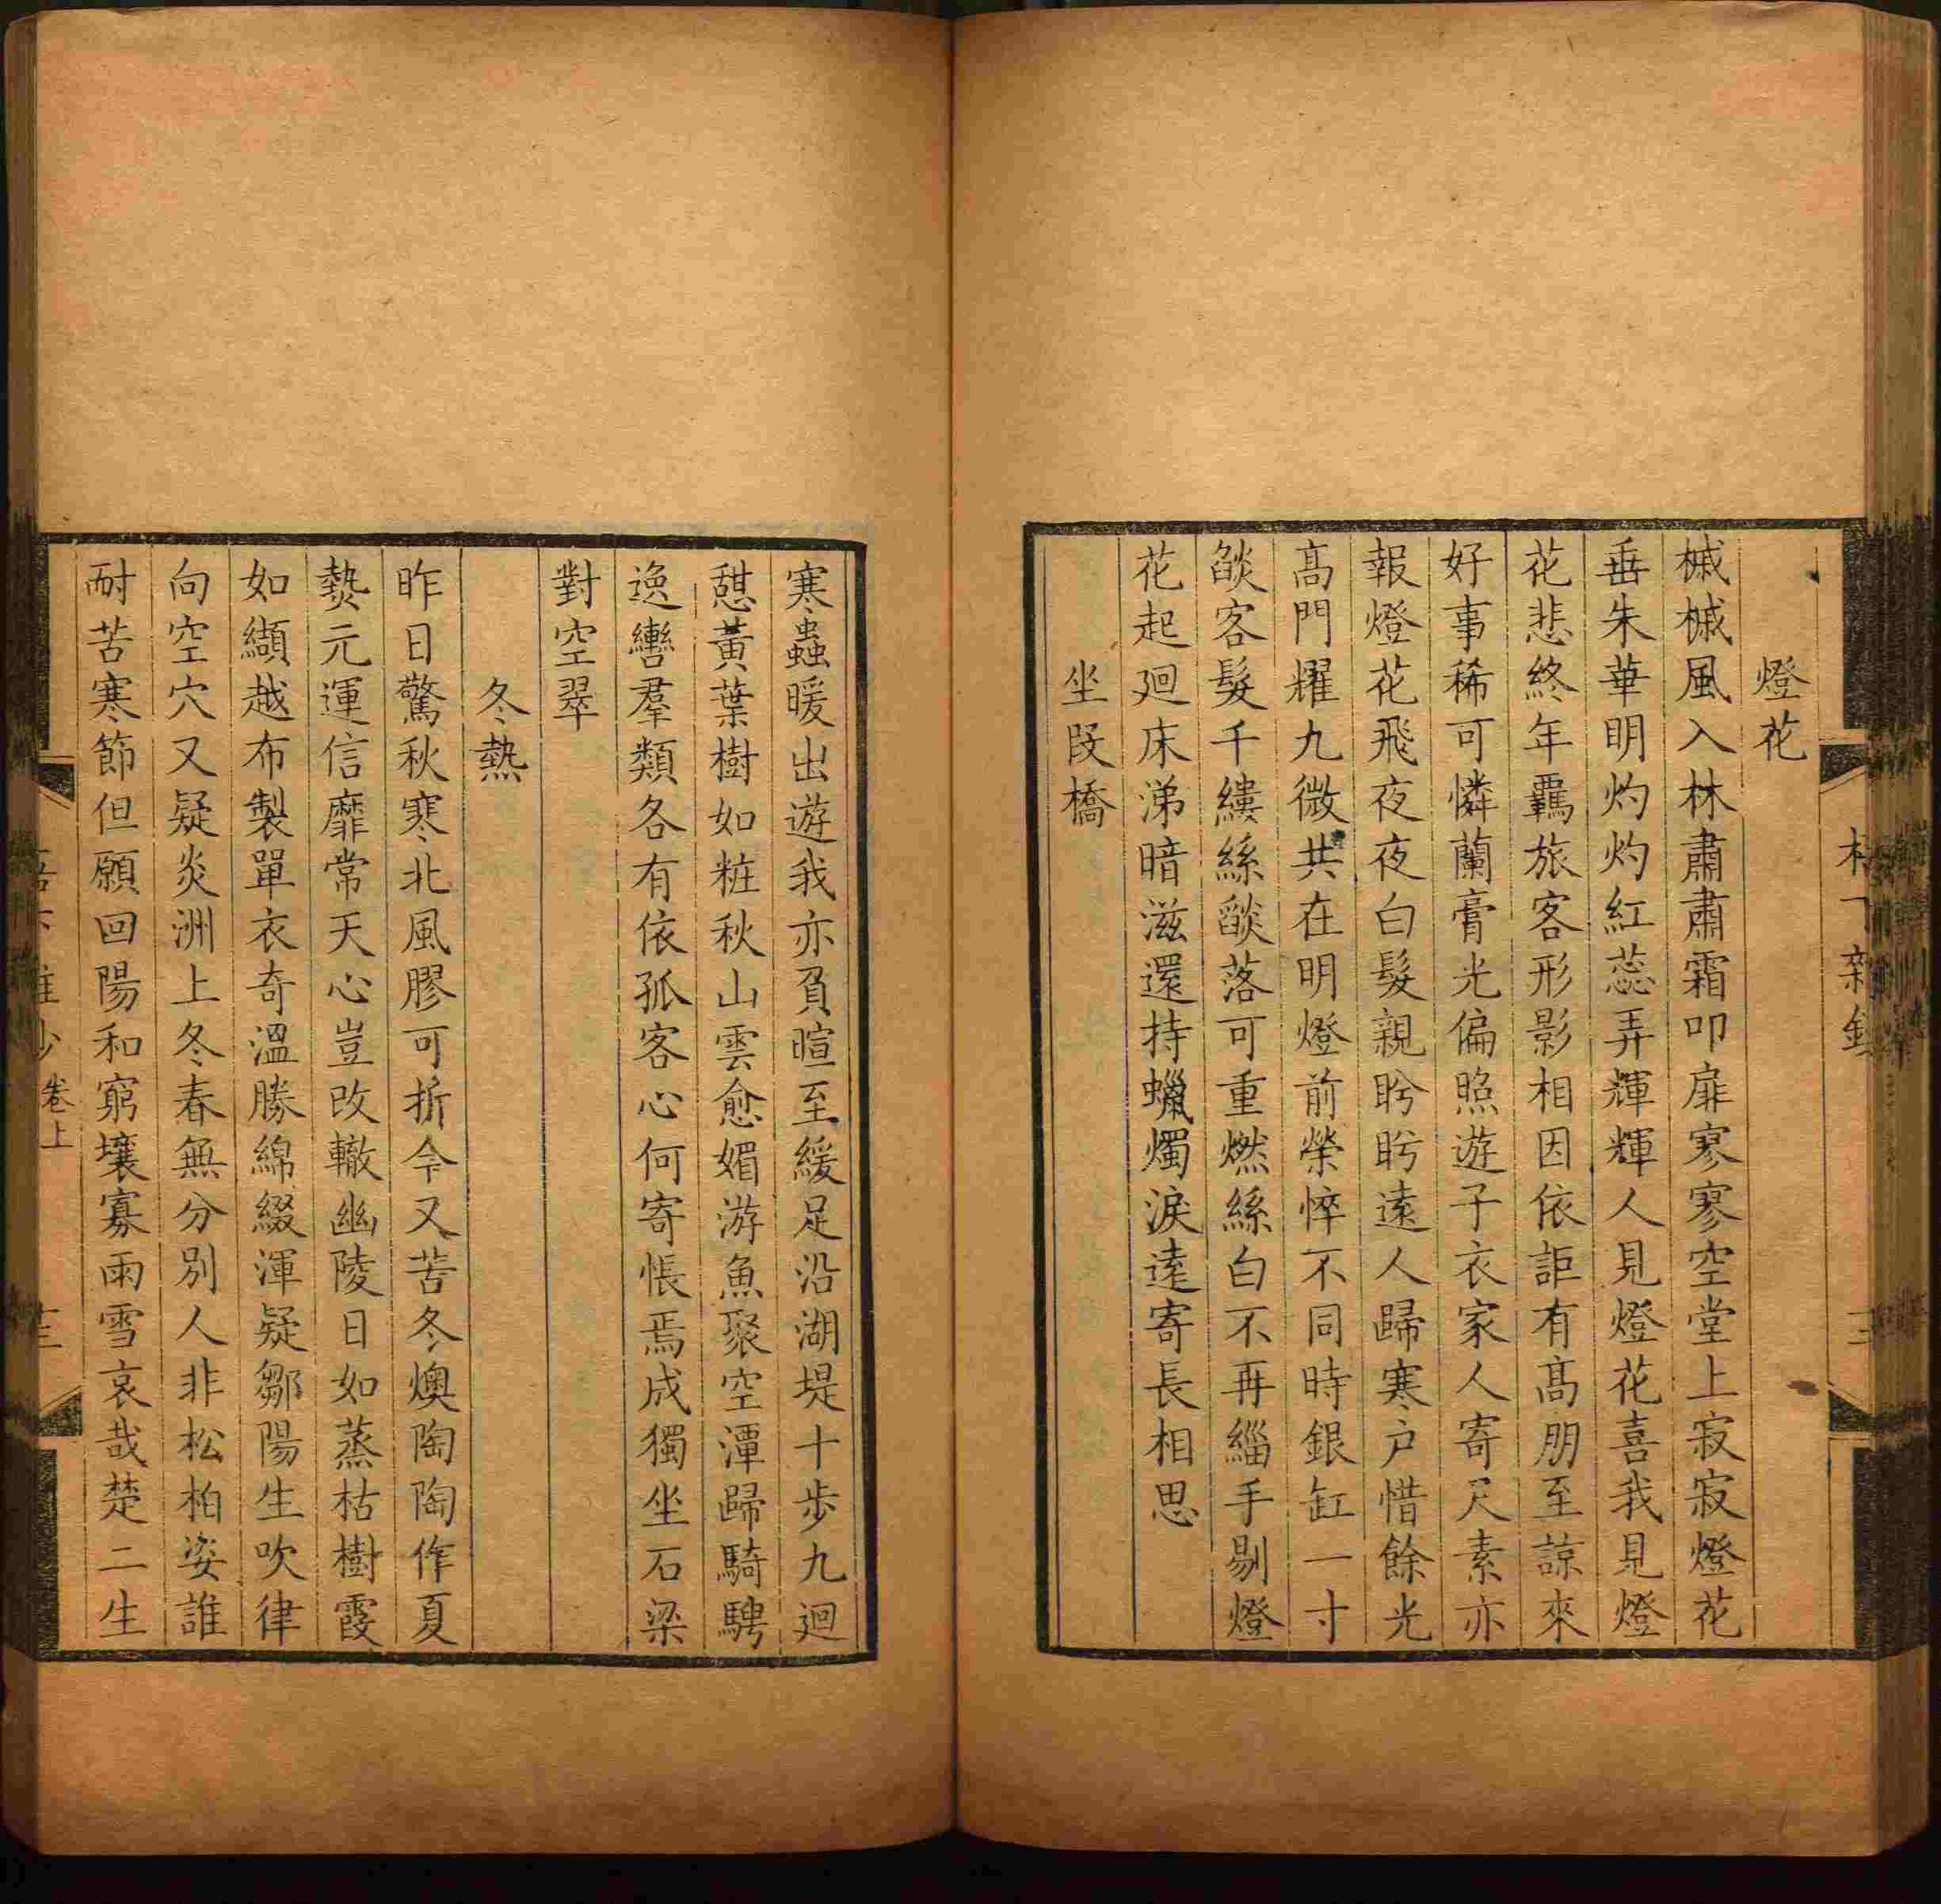 燈花
槭槭風入林肅肅霜叩扉寥寥空堂上寂寂燈花
垂朱華明灼灼紅蕊弄輝輝人見燈花喜我見燈
花悲終年羈旅客形影相因依詎有髙朋至諒來
好事稀可憐蘭膏光偏照遊子衣家人寄尺素亦
報燈花飛夜夜白髮親盻盻遠人歸寒戶惜餘光
髙門耀九微共在明燈前榮悴不同時銀缸一寸
燄客髮千縷絲燄落可重燃絲白不再緇手剔燈
花起迴床涕暗滋還持蠟燭淚遠寄長相思
坐段橋
寒蟲暖出遊我亦負暄至緩足沿湖堤十步九迴
憇黃葉樹如粧秋山雲愈媚游魚聚空潭歸騎騁
逸轡羣類各有依孤客心何寄悵焉成獨坐石梁
對空翠
冬熱
昨日驚秋寒北風膠可折今又苦冬燠陶陶作夏
爇元運信靡常天心豈改轍幽陵日如蒸枯樹霞
如纈越布製單衣奇溫勝綿綴渾疑鄒陽生吹律
向空穴又疑炎洲上冬春無分別人非松柏姿誰
耐苦寒節但願回陽和窮壤寡雨雪哀哉楚二生
卷上